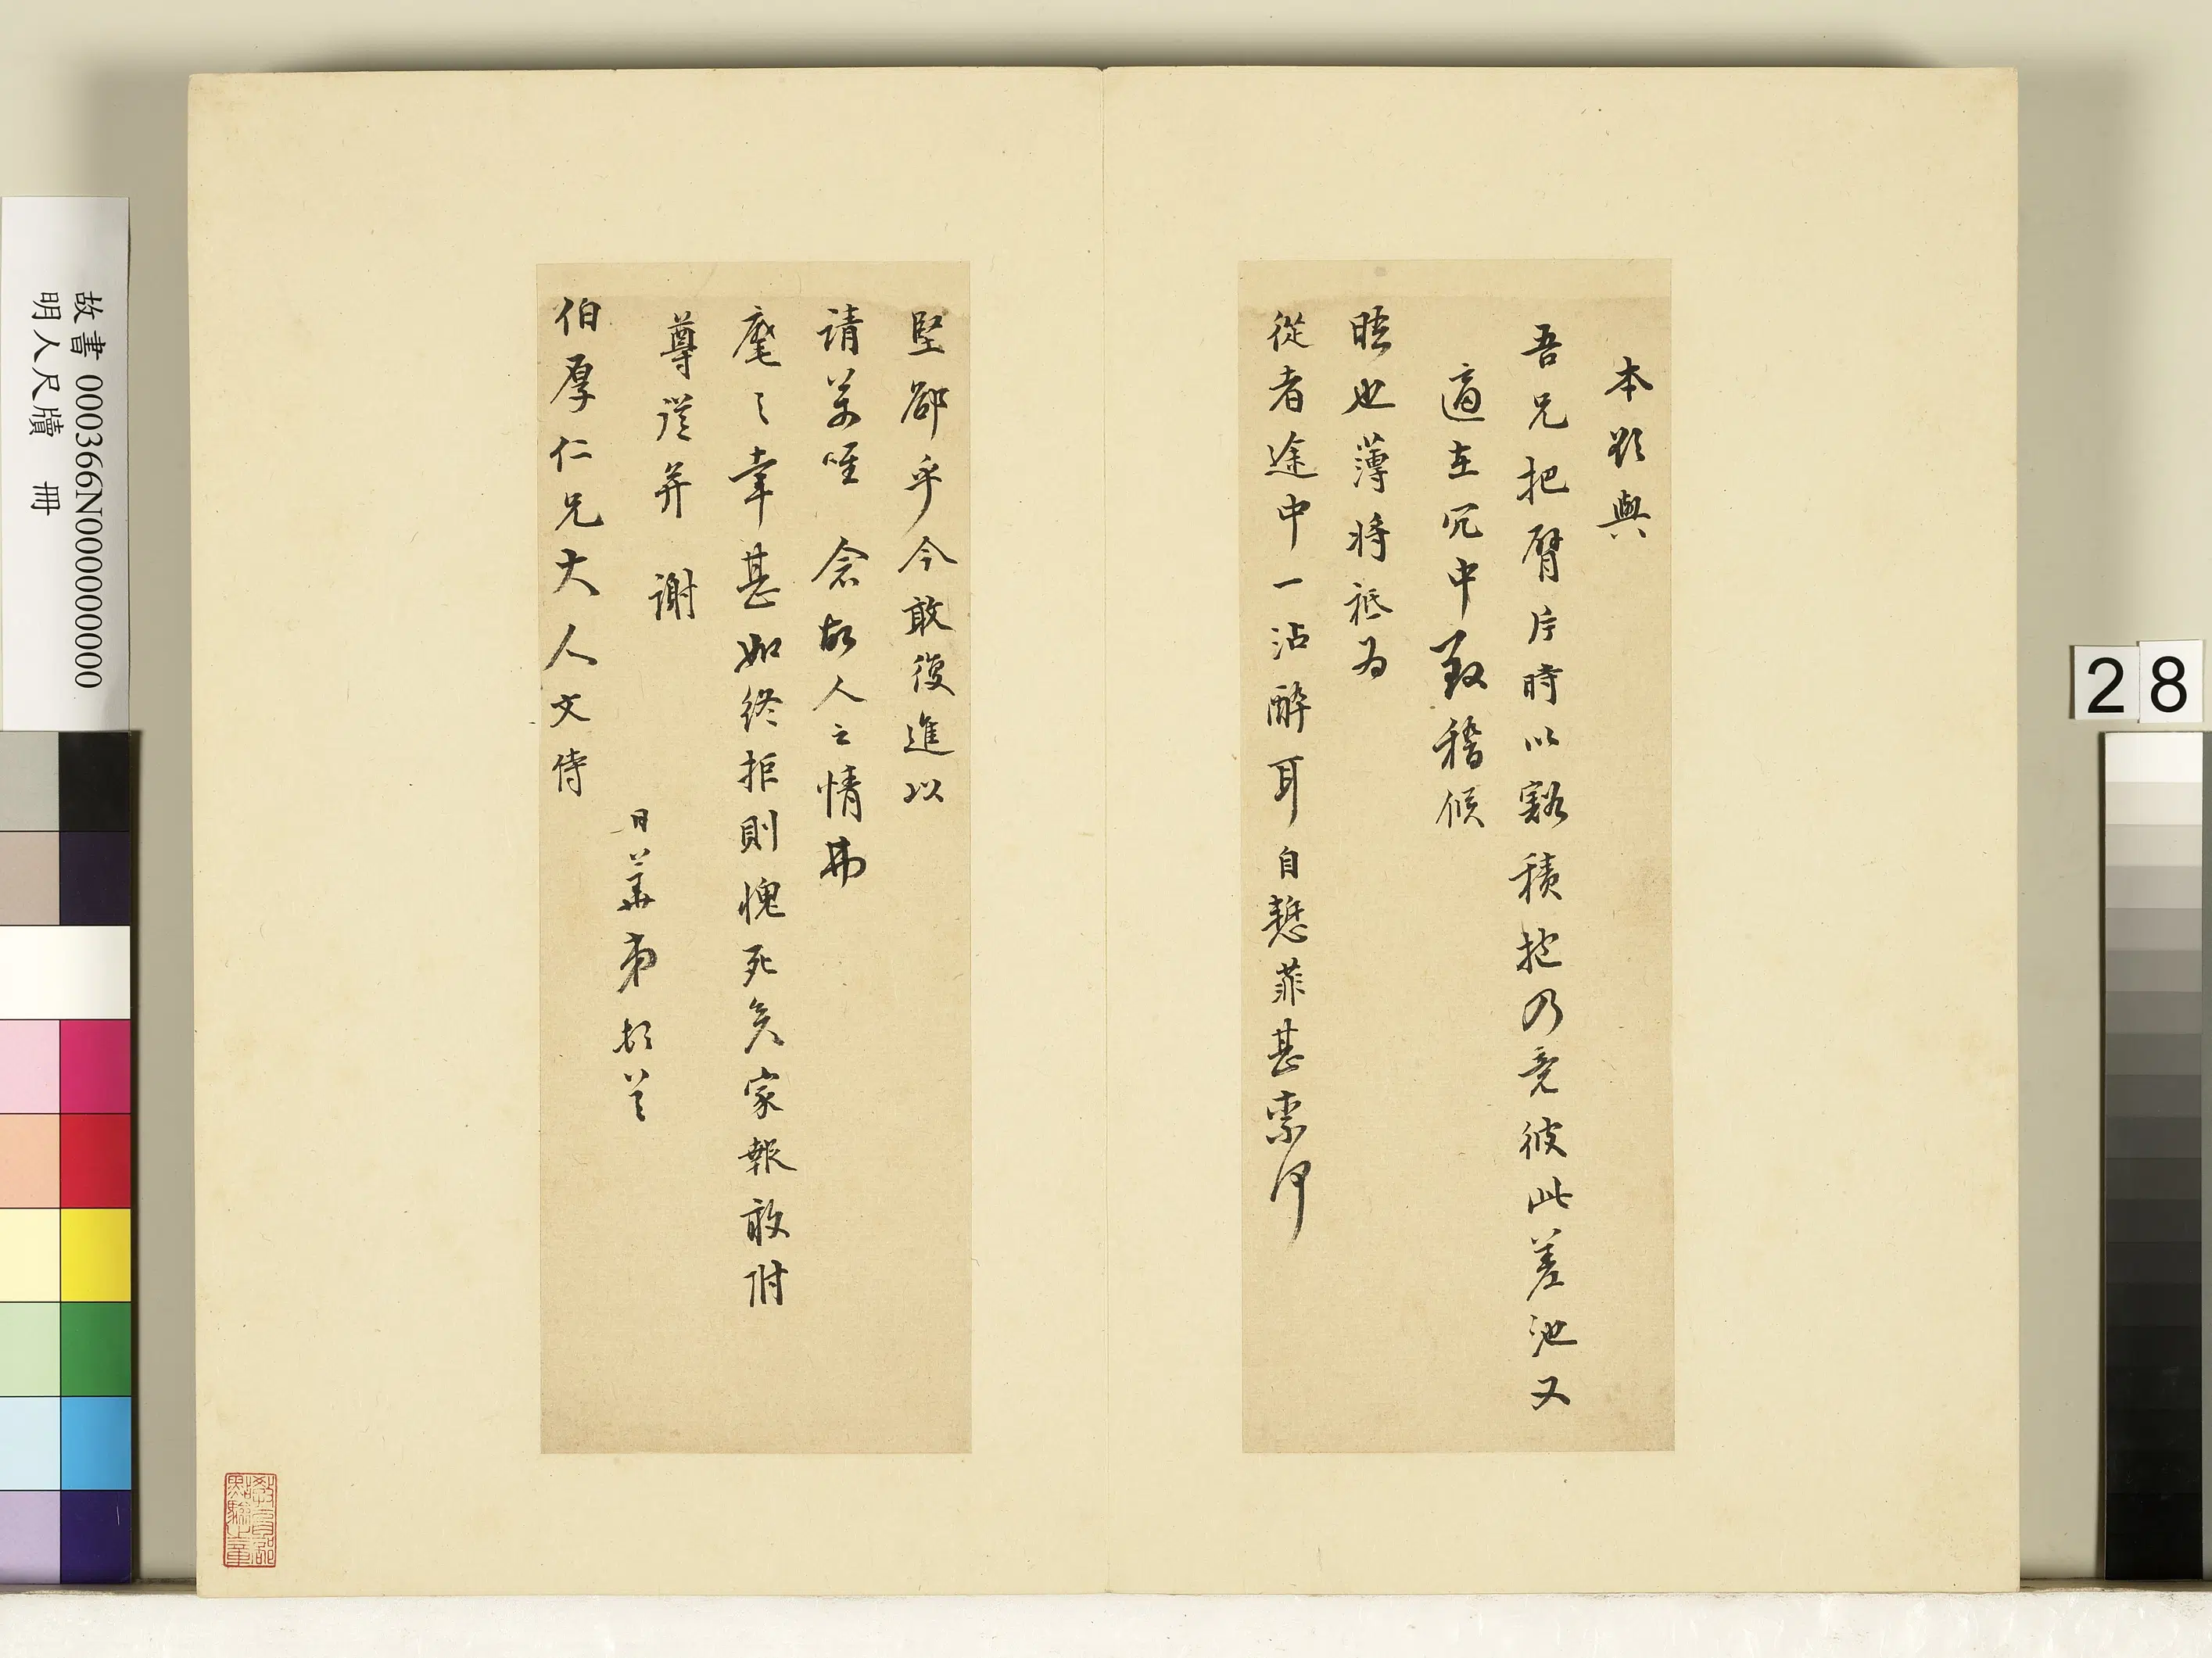 本欲與
吾兄把臂片時以豁積抱乃竟彼此差池又
適在冗中致稽候
晤也薄將祇為
從者途中一沾醉耳自慙菲甚素何
堅卻乎今敢復進以
請萬唯 念故人之情弗
麾之幸甚如終拒則愧死矣家報敢附
尊從并 謝
日華弟頓首
伯厚仁兄大人文侍
故書 000366N000000000
明人尺牘 冊
28